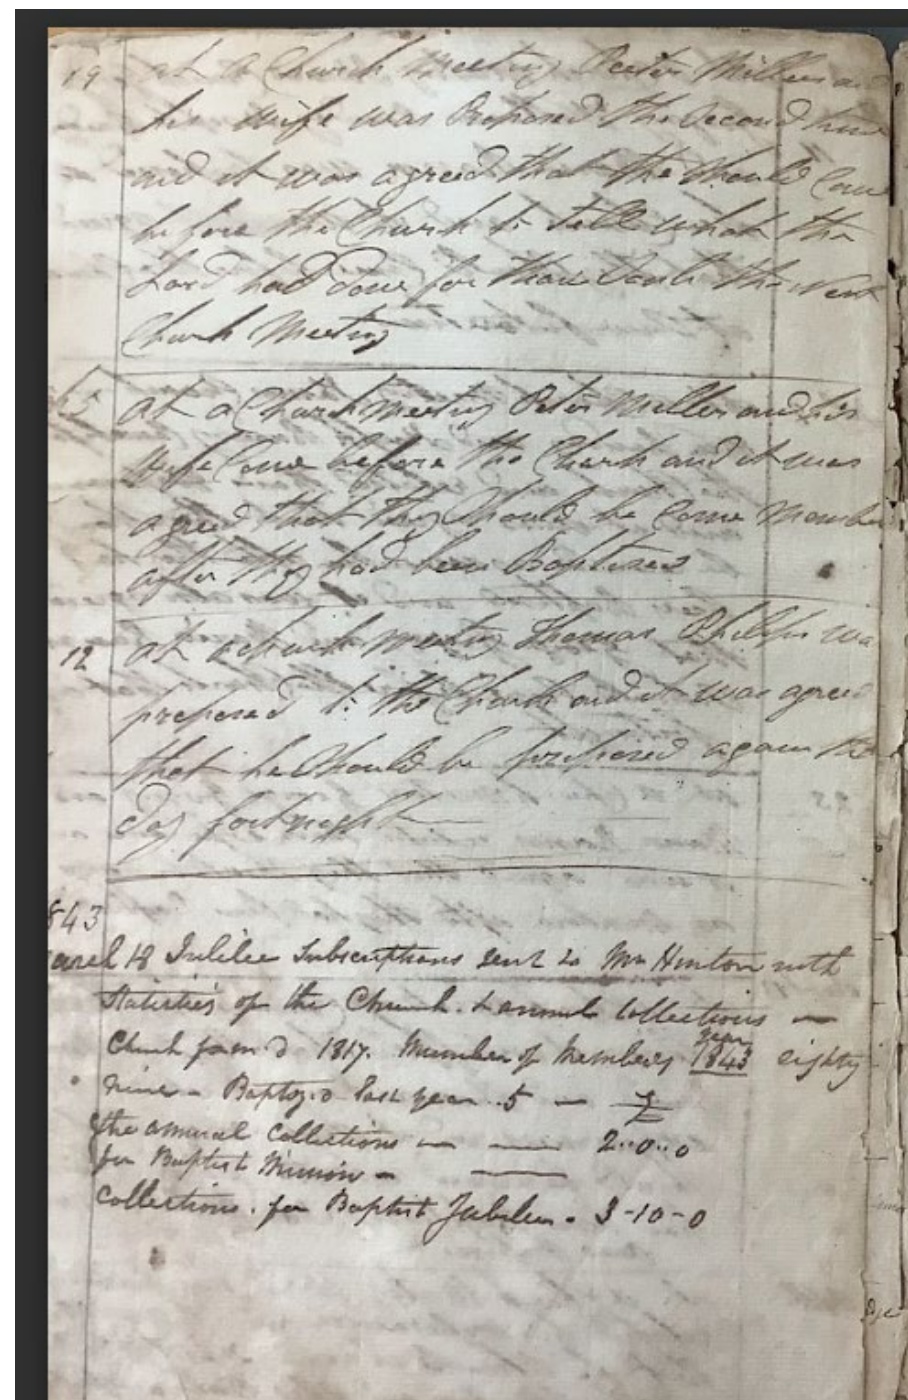 19 at a Church meeting Peeter Miller and
his wife was Proposed the Second time
and it was agreed that the Should Come
before the Church to tell what the
Lord had done for thair Souls the Next
Church Meeting
5 at a Church meeting Peter Miller and his
wife Come before the Church and it was
agreed that they Should be Come Member
after they had been Baptised
12 at a church meeting Thomas Philips wa
proposed to the Church and it was agreed
that he Should be proposed again this
day fortnight
843
18 Jubilee Subscriptions sent to Mr Hinton with
Statistics of the Church & annual Collections —
Church form'd 1817. Number of Members year 1843 eighty
nine - Baptiz.d last year ..5 —
the annual Collections — — 2..0..0
for Baptist Mission - —
Collections. for Baptist Jubilee. 3-10-0